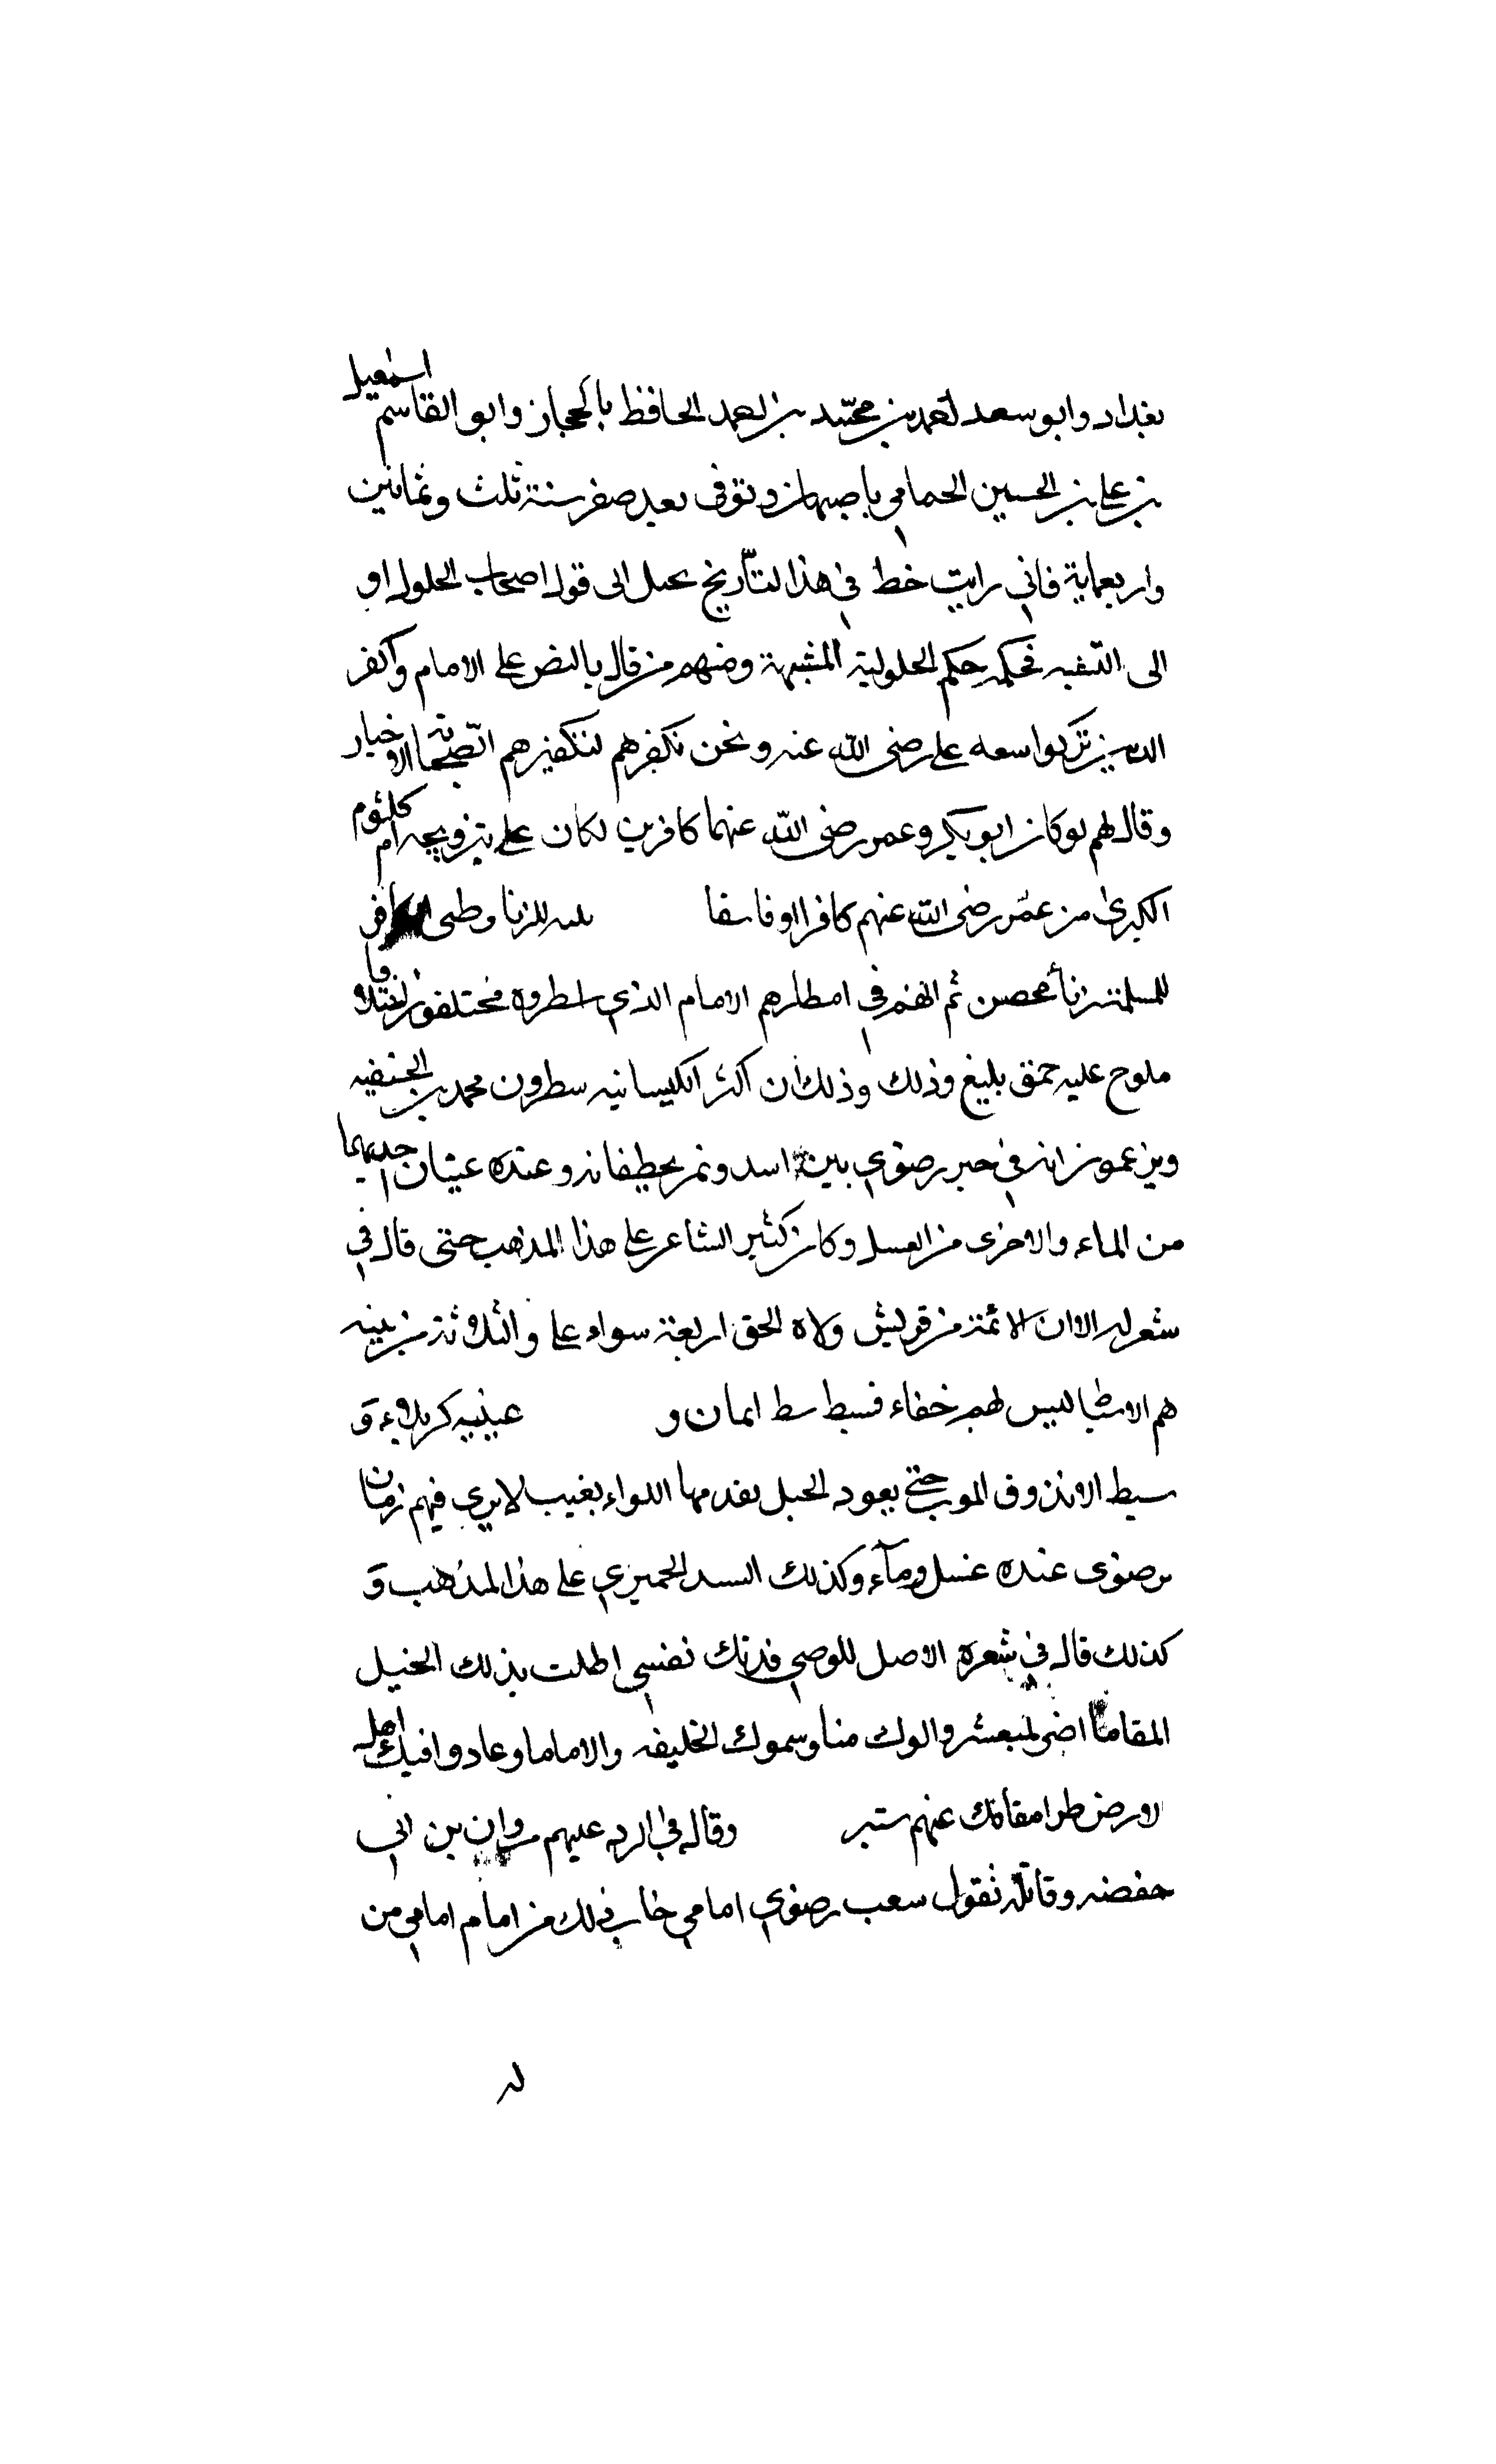 بغداد وابو سعد احمد بن محمد بن احمد الحافظ بالحجاز وابو القاسم اسمعيل
بن علي بن الحسين الحمامي باصبهان وتوفى بعد صفر سنة ثلث وثمانين
واربعماية فاني رايت خط في هذا التاريخ الى قول اصحاب الحلول او
الى التشبيه فحكمه حكم الحلولية المشبهة ومنهم من قال بالنص على الامام واكفر
الذين تركوا بيعه علي رضى الله عنه ونحن نكفرهم لتكفيرهم الصحابة الاخيار
وقال لهم لو كان ابو بكر وعمر رضى الله عنهما كافرين لكان علي بتزويجه ام كلثوم
الكبرى من عمر رضى الله عنهم كافرا او فاسقا للزنا وطى الكافر
للمسلمة زنا محصن ثم انهم في انتظارهم الامام الذي انتظروه مختلفون اختلافا
ملوح عليه حمق بليغ وذلك وذلك ان اكثر الكيسانيه ينتظرون محمد بن الحنفيه
ويزعمون انه في رضوى بين اسد ونمر يحفظانه وعنده عينان احديهما
من الماء والاخرى من العسل وكان كثير الشاعر على هذا المذهب حتى قال في
شعر له الا ان الائمة من قريش ولاه الحق اربعة سواء علي والثلاثة من بنيه
هم الاسباط ليس لهم خفاء فسبط سبط ايمان و غيبته كربلاء و
سبط لا يذوق الموت حتى يعود الخيل يقدمها اللواء يغيب لا يري فيهم زمان
برضوى عنده عسل وماء وكذلك السيد الحميري على هذا المذهب و
كذلك قال في شعره الا قل للوصي فدتك نفسي اطلت بذلك الجبل
المقاما اضر بمعشر والوك منا وسموك الخليفه والاماما وعادوا فيك اهل
الارض طرا مقامك عنهم وقال في الرد عليهم مروان بن ابي
حفصه وقائله تقول شعب رضوي امامي خاب ذلك من امام امامي من
له